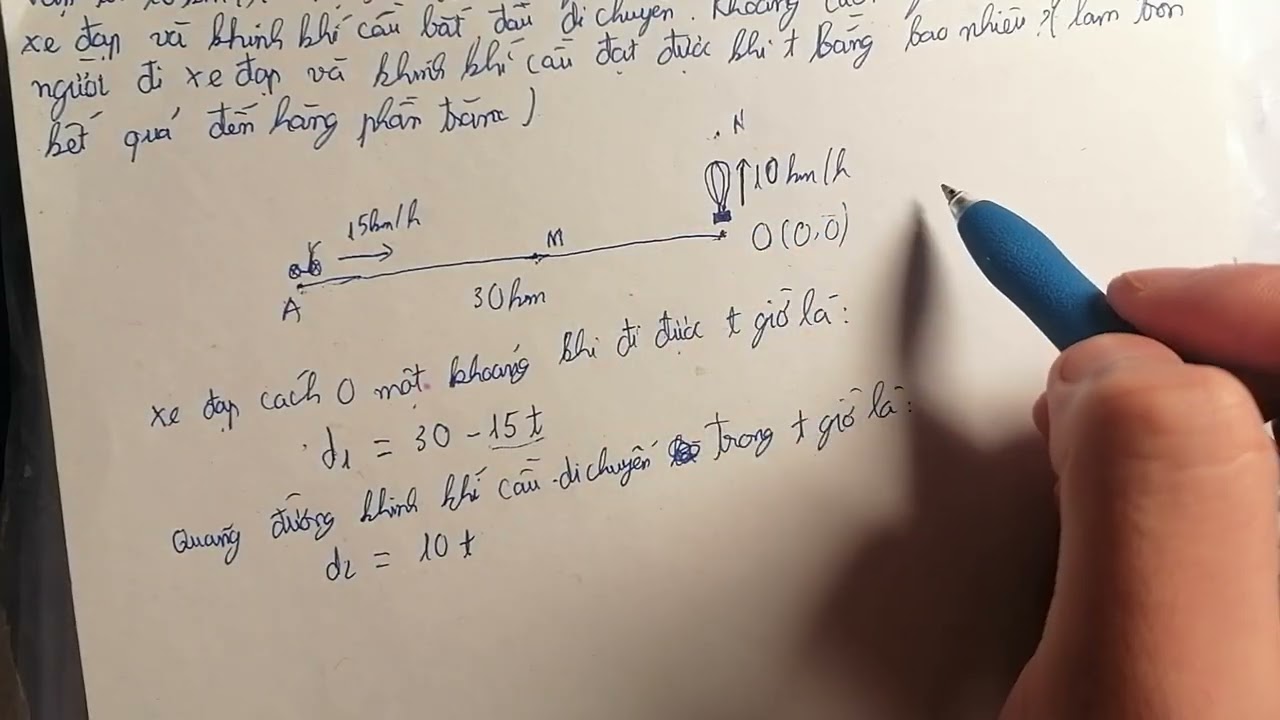 xe đạp và khinh khí cầu bắt đầu di chuyển. Khoảng
người đi xe đạp và khinh khí cầu đạt được khi t bằng bao nhiêu? (làm tròn
kết quả đến hàng phần trăm)
N
10 km/h
15km/h
M
O(0,0)
A
30km
xe đạp cách O một khoảng khi đi được t giờ là:
d1 = 30 - 15t
Quãng đường khinh khí cầu di chuyển trong t giờ là:
d2 = 10t